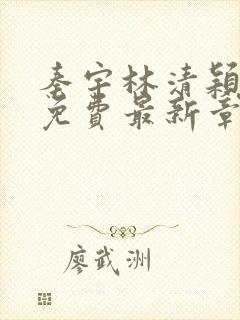 秦宇林清穎
免費最新章
廖武洲